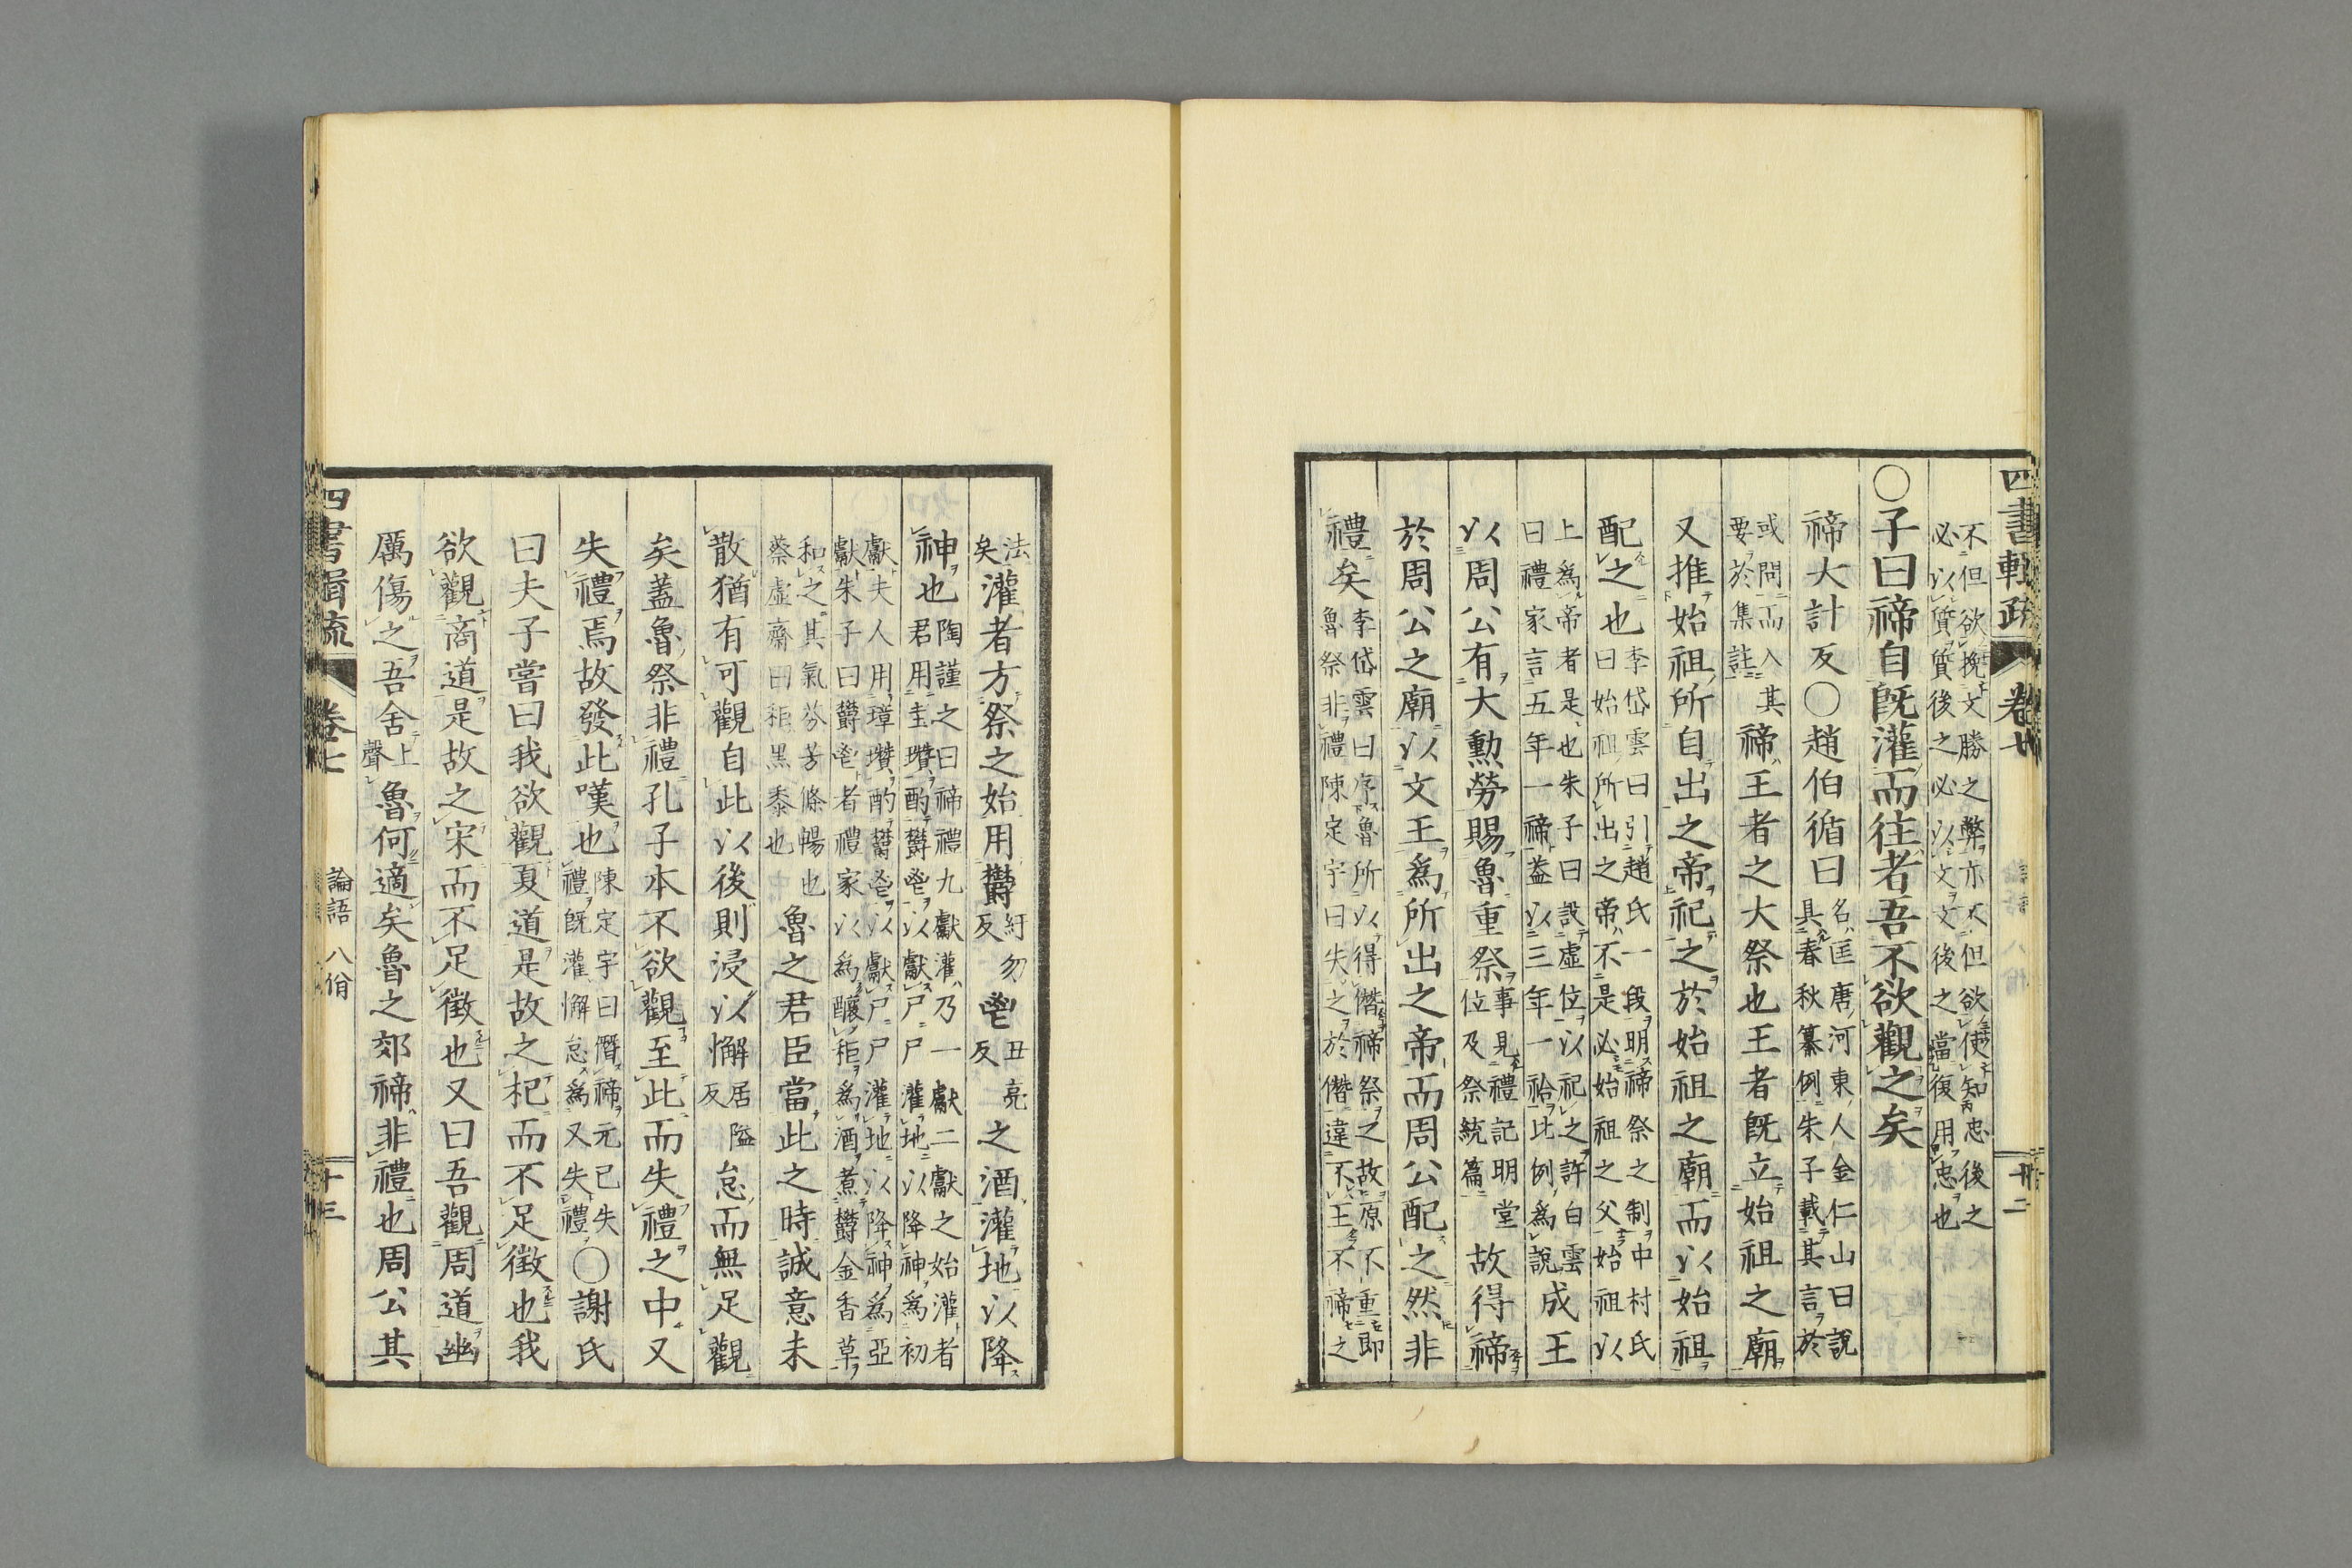 四書輯疏 卷七 十二
不但欲挽文勝之弊亦不但欲使知忠後之
必以質質後之必以文文後之當復用忠也
○子曰禘自既灌而往者吾不欲觀之矣
禘大計反○趙伯循曰
名匡唐河東人金仁山曰說
具春秋纂例朱子載其言於
或問而入其
要於集註
禘王者之大祭也王者既立始祖之廟
又推始祖所自出之帝祀之於始祖之廟而以始祖
配之也
李岱雲曰引趙氏一段明禘祭之制中村氏
曰始祖所出之帝不是必始祖之父始祖以
上爲帝者是也朱子曰設虛位以祀之許白雲
曰禮家言五年一禘蓋以三年一祫此例爲說
成王
以周公有大勳勞賜魯重祭
事見禮記明堂
位及祭統篇
故得禘
於周公之廟以文王爲所出之帝而周公配之然非
禮矣
李岱雲曰序魯所以得僭禘祭之故原不重即
魯祭非禮陳定宇曰失之於僭違不王不禘之
法
矣
灌者方祭之始用鬱
紆勿
反
鬯
丑亮
反
之酒灌地以降
神也
陶謹之曰禘禮九獻灌乃一獻二獻之始灌者
君用圭瓚酌鬱鬯以獻尸尸灌地以降神爲初
獻夫人用璋瓚酌鬱鬯以獻尸尸灌地以降神爲亞
獻朱子曰鬱鬯者禮家以爲釀秬爲酒煮鬱金香草
和之其氣芬芳條暢也
蔡虛齋曰秬黑黍也
魯之君臣當此之時誠意未
散猶有可觀自此以後則浸以懈
居隘
反
怠而無足觀
矣蓋魯祭非禮孔子本不欲觀至此而失禮之中又
失禮焉故發此嘆也
陳定宇曰僭禘元已失
禮既灌懈怠爲又失禮
○謝氏
曰夫子嘗曰我欲觀夏道是故之杞而不足徵也我
欲觀商道是故之宋而不足徵也又曰吾觀周道幽
厲傷之吾舍
上
聲
魯何適矣魯之郊禘非禮也周公其
四書輯疏 卷七 論語 八佾 十三